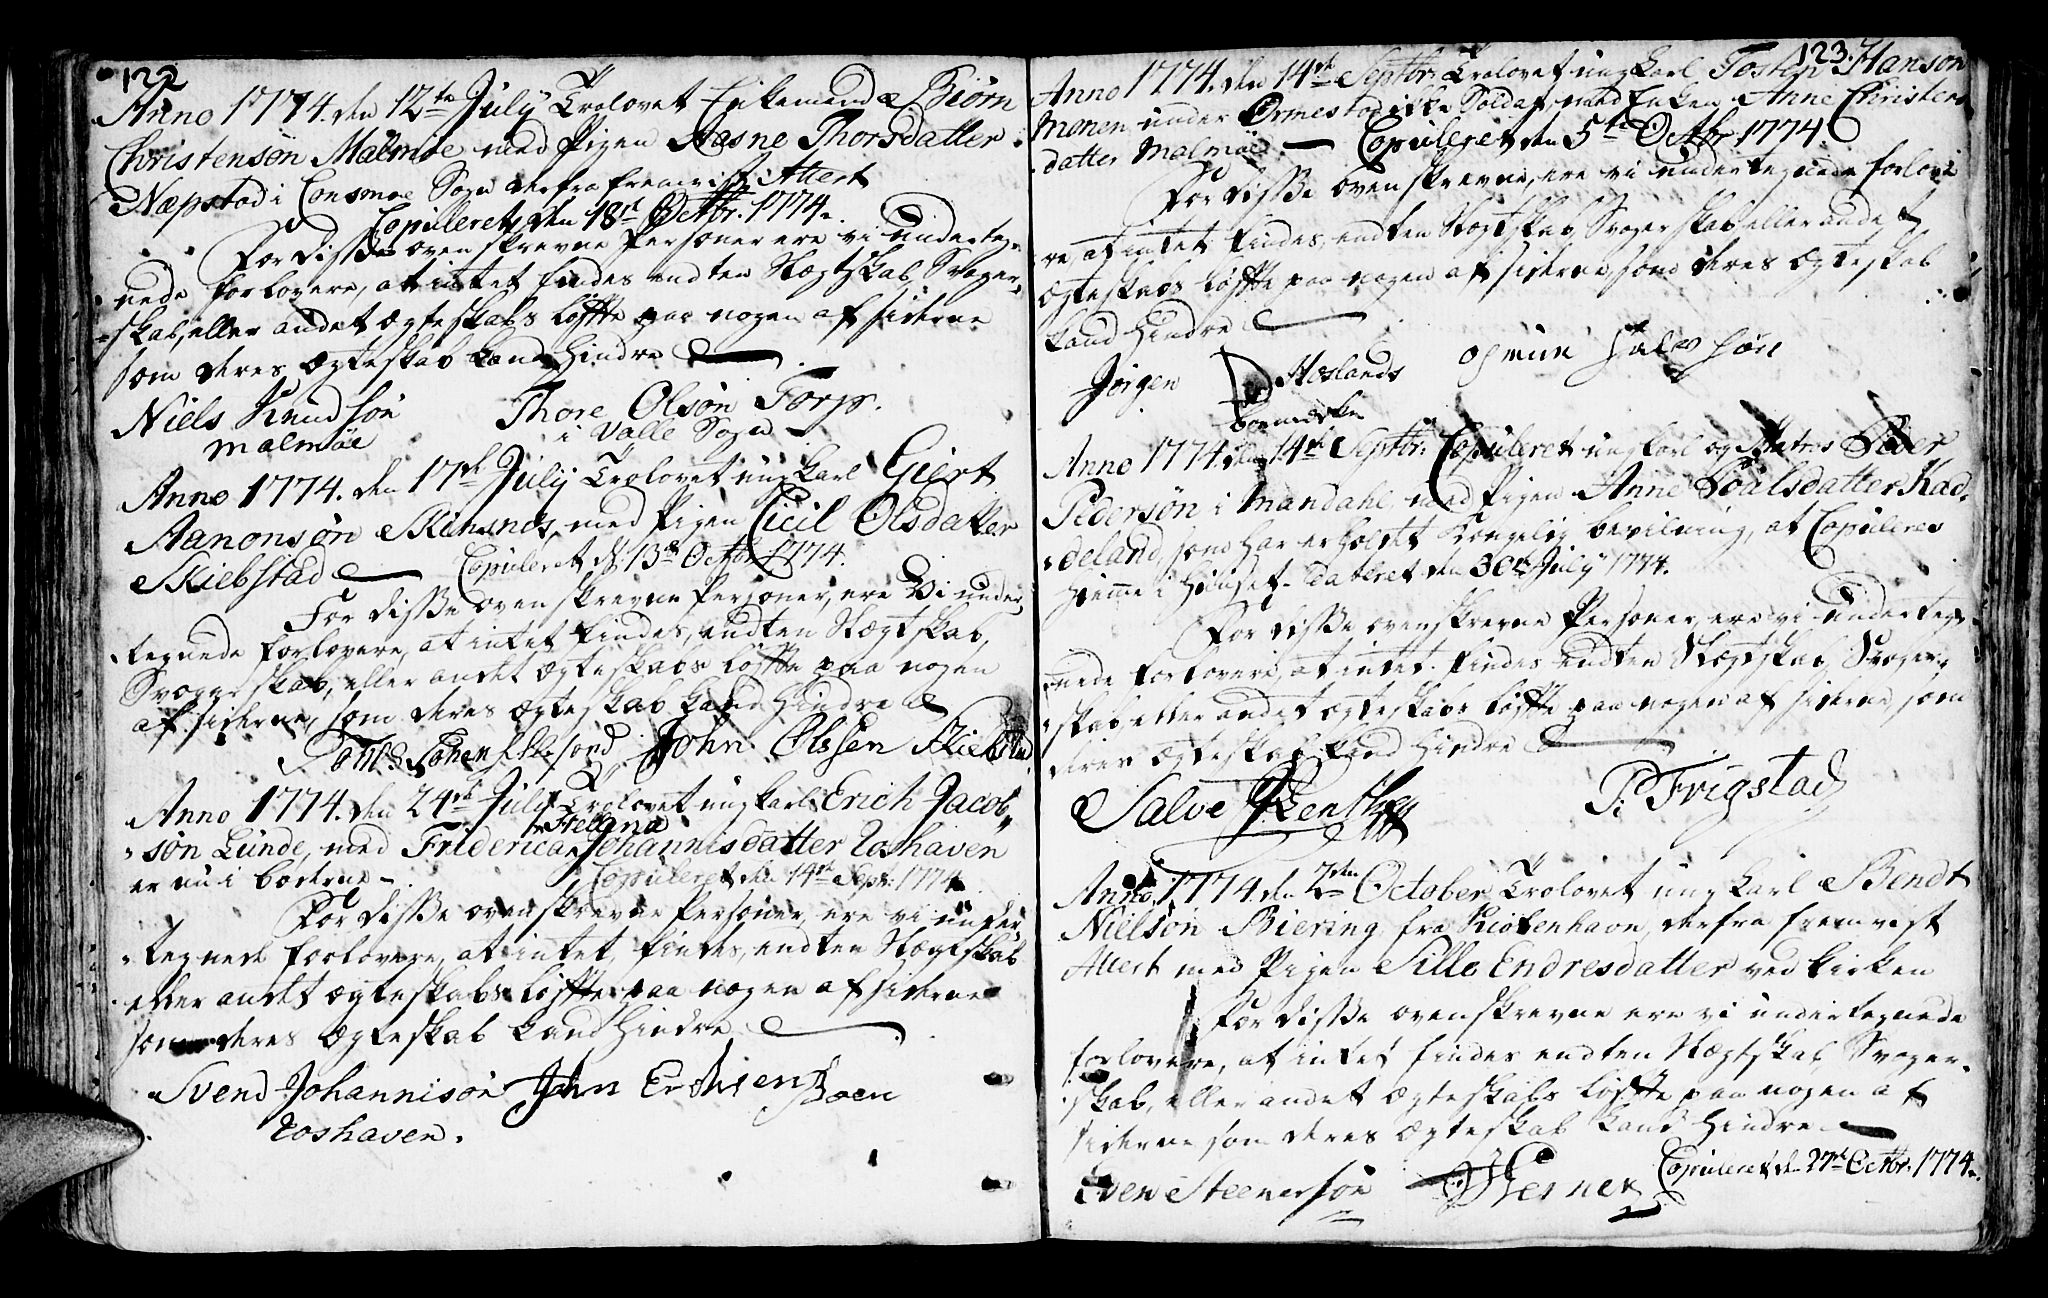 122
Anno 1774. den 12te July Trolovet Enkemand Biørn
Christensøn Malmøe med Pigen Aasne Thorsdatter
Næpstad i Consmoe Sogn derfra fremvist Attest
Copuleret den 18de Octbr. 1774.
For disse ovenskrevne Personer ere vi underteg-
nede forlovere, at intet findes endten Slægtskab, Svoger-
skab, eller andet Ægteskabs løffte paa nogen af siderne
som deres Ægteskab kand hindre
Niels Knudsøn
Malmøe
Thore Olsøn Torp.
i Valle Sogn
Anno 1774. den 17de July Trolovet ungkarl Giert
Aanonsøn Skinsnes, med Pigen Cicil Olsdatter
Skiebstad
Copuleret d. 13de Octbr. 1774.
For disse ovenskrevne Personer, ere Vi under-
tegnede forlovere, at intet findes, endten Slægtskab,
Svogerskab, eller andet Ægteskabs løffte paa nogen
af siderne, som deres Ægteskab kand hindre
John Olssen Skiebstad
Anno 1774. den 24de July Trolovet ungkarl Erich Jacob-
søn Lunde, med Friderica Helena Johannisdatter Roshaven
er nu i boende
Copuleret den 14de Sept. 1774
For disse ovenskrevne Personer, ere vi under-
tegnede forlovere, at intet, findes, endten Slægtskab
eller andet Ægteskabs løffte paa nogen af siderne
som deres Ægteskab kand hindre
Svend Johannisøn
Roshaven.
John Erchsen Boen
123.
Anno 1774. den 14de Septbr. Trolovet ungkarl Tosten Hanson
Monen under Ormestad iche Soldat, med Enken Anne Christens
datter Malmøe. — Copuleret den 5te Octbr 1774
For disse ovenskrevne, ere vi undertegnede forlove
re, at intet findes, endten Slægtskab Svogerskab eller andet
Ægteskabs løffte paa nogen af siderne, som deres Ægteskab
kand hindre
Jørgen Hoslands
Bomerke
Anno 1774. den 14de Septbr. Copuleret ungkarl og Matros Peder
Pedersøn i Mandahl, med Pigen Anne Poulsdatter Kad-
deland, som har erholdt Kongelig bevilning, at Copuleres
hieme i Huuset. Dateret den 30te July 1774.
For disse ovenskrevne Personer, ere vi underteg-
nede forlovere, at intet findes endten Slægtskab, Svoger-
skab eller andet Ægteskabs løffte paa nogen af siderne, som
deres Ægteskab kand hindre
Salve
P: Frigstad
Anno 1774 den 2den October, Trolovet ungkarl Bendt
Nielson Biering fra Kiøbenhavn, derfra fremvist
Attest med Pigen Sille Endresdatter ved kirken
For disse ovenskrevne ere vi undertegnede
forlovere, at intet findes endten Slægtskab, Svoger-
skab, eller andet Ægteskabs løffte paa nogen af
siderne som deres Ægteskab kand hindre
Copuleret d. 27de Octbr. 1774.
Even Steenersøn
Werner